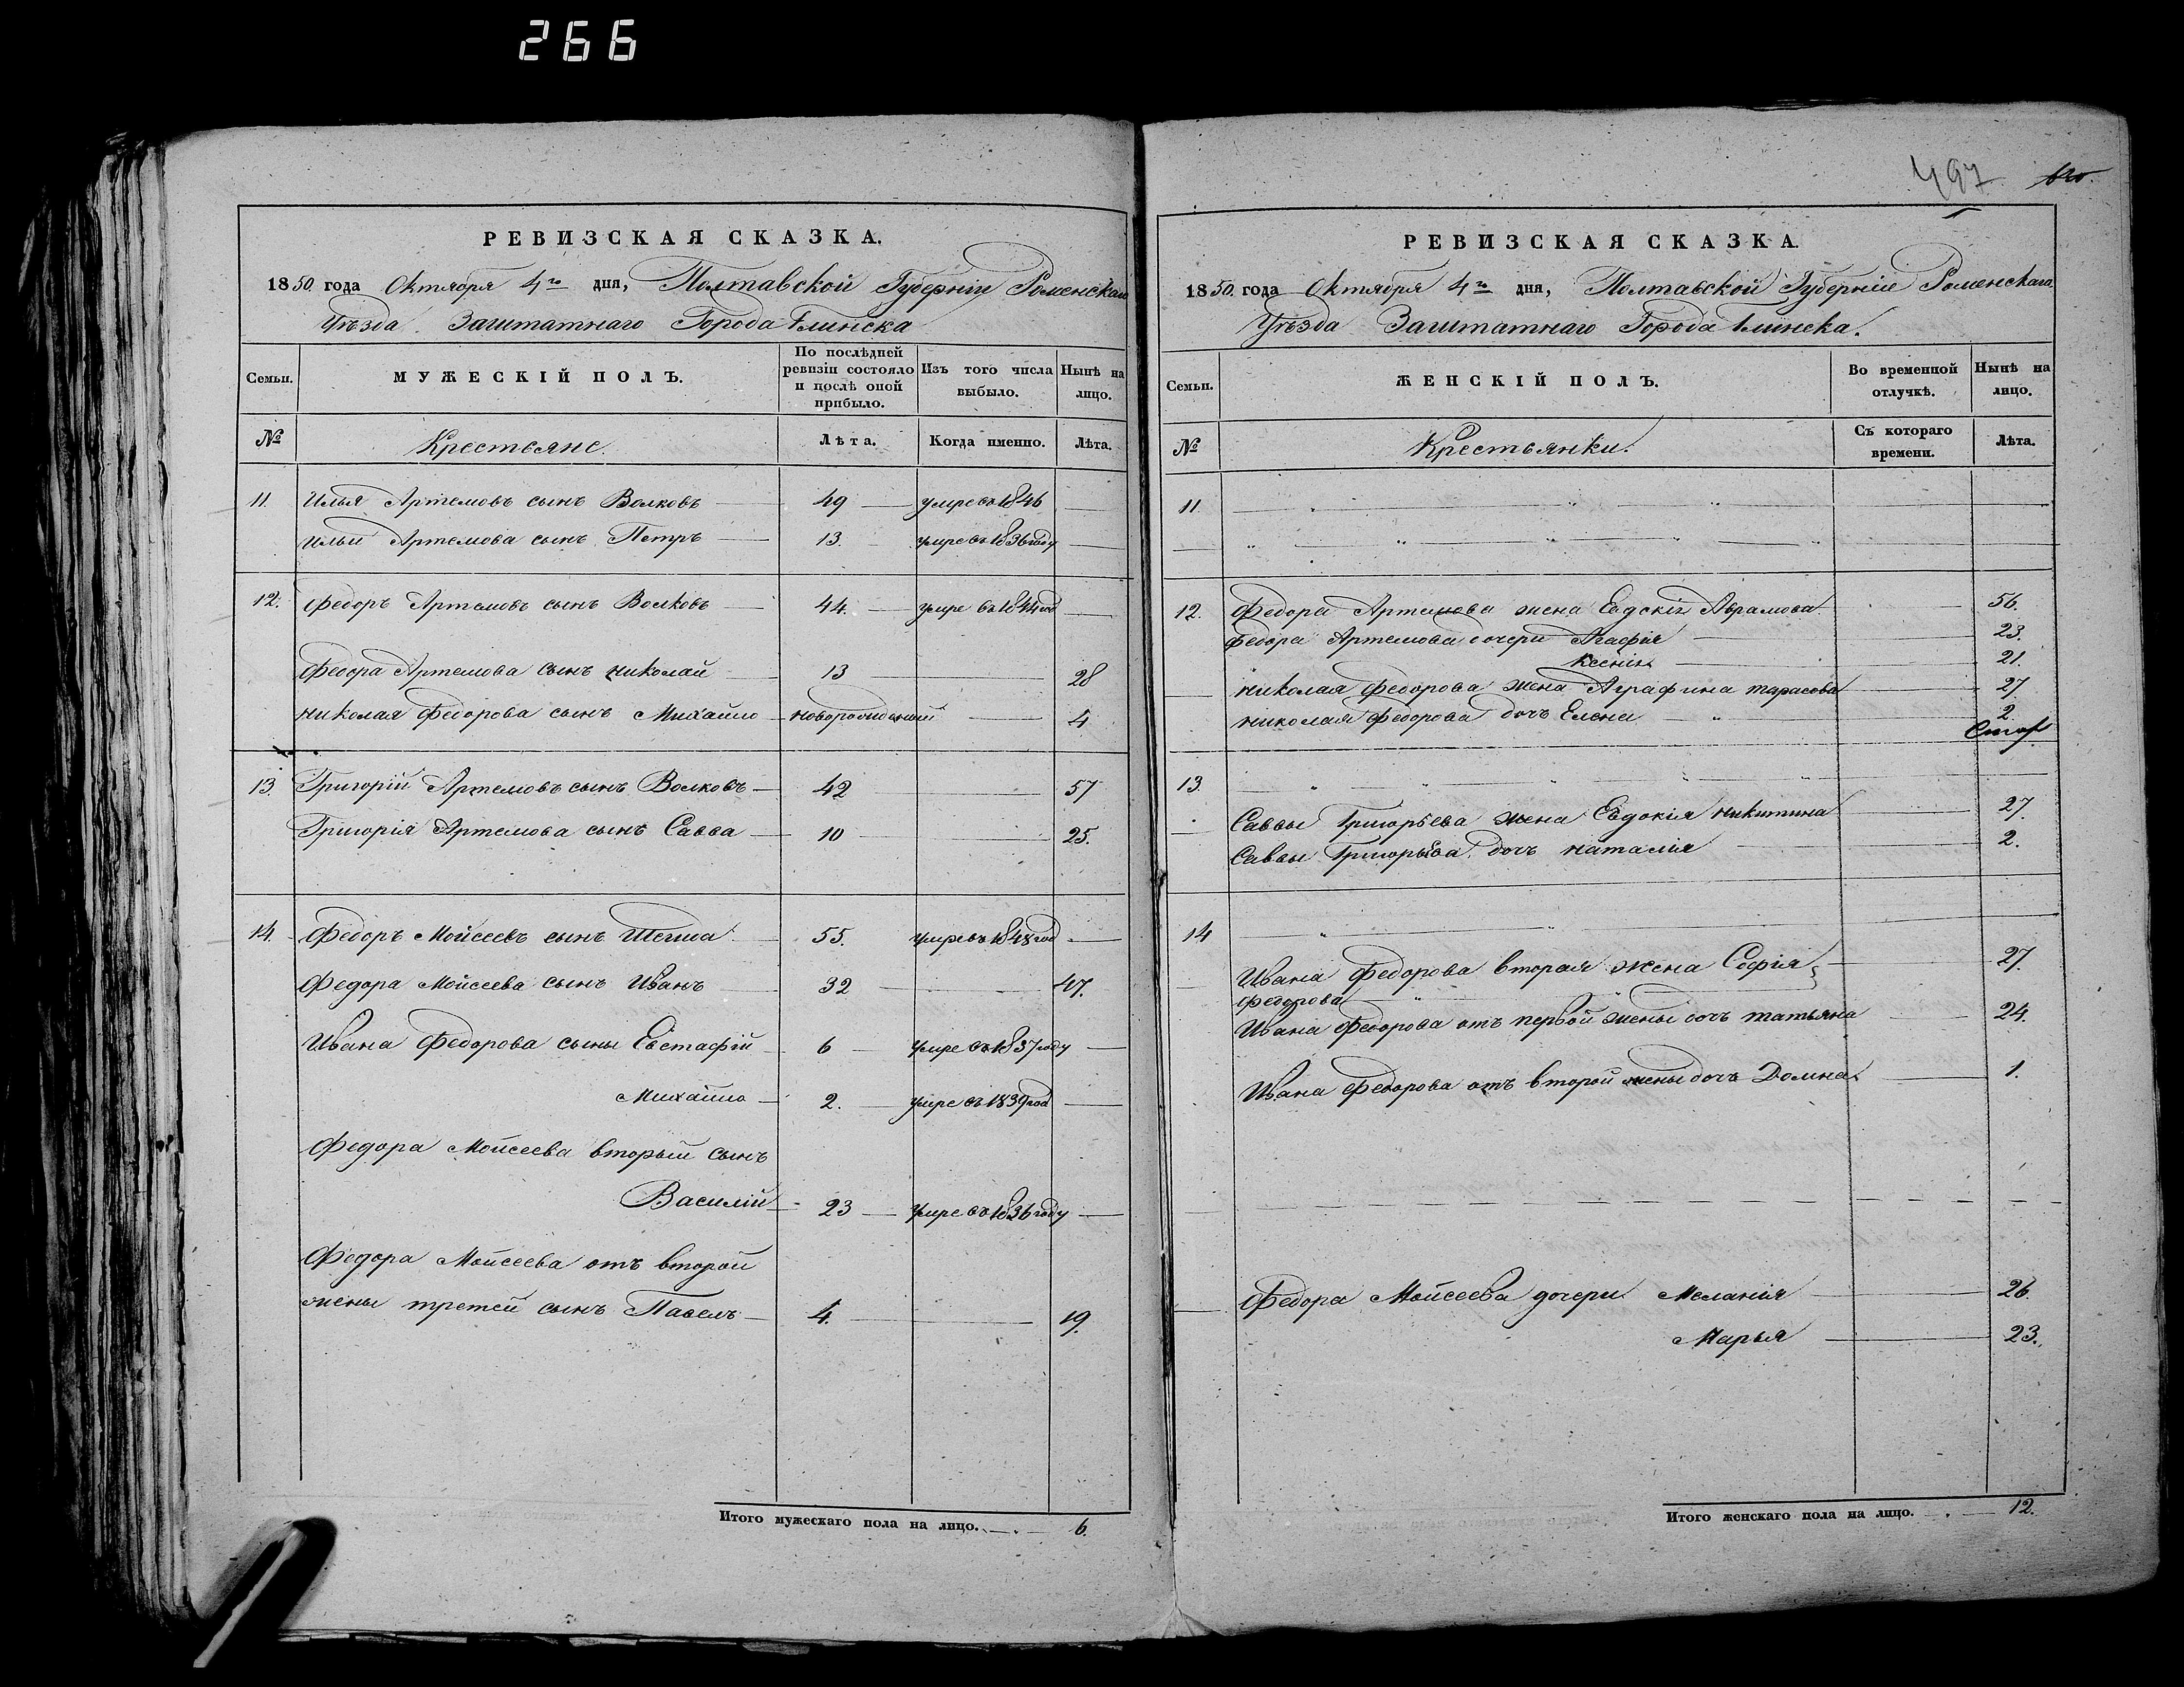 266
РЕВИЗСКАЯ СКАЗКА.
1850 года Октября 4го дня, Полтавской Губерніи Роменскаго
Уѣзда Заштатнаго Города Глинска
Семьи. МУЖЕСКІЙ ПОЛЪ. По послѣдней ревизіи состояло и послѣ оной прибыло. Изъ того числа выбыло. Нынѣ на лицо.
№ Крестьяне. Лѣта. Когда именно. Лѣта.
11. Илья Артемовъ сынъ Волковъ 49 умре въ 1846
Ильи Артемова сынъ Петръ 13. умре въ 1836 году
12. Федоръ Артемовъ сынъ Волковъ 44. умре въ 1844 год
Федора Артемова сынъ Николай 13 28
Николая Федорова сынъ Михайло новорожденный 4
13. Григорій Артемовъ сынъ Волковъ 42 57
Григорія Артемова сынъ Савва 10 25.
14. Федоръ Мойсеевъ сынъ 55. умре въ 1848 год
Федора Мойсеева сынъ Иванъ 32 47.
Ивана Федорова сыны Евстафій 6 умре въ 1837 году
Михайло 2. умре въ 1839 год
Федора Мойсеева вторый сынъ
Василій 23 умре въ 1836 году
Федора Мойсеева отъ второй
жены третей сынъ Павелъ 4. 19.
Итого мужескаго пола на лицо. 6.
497
РЕВИЗСКАЯ СКАЗКА.
1850. года Октября 4го дня, Полтавской Губерніи Роменскаго
Уѣзда Заштатнаго Города Глинска.
Семьи. ЖЕНСКІЙ ПОЛЪ. Во временной отлучкѣ. Нынѣ на лицо.
№ Крестьянки. Съ котораго времени. Лѣта.
11
12. Федора Артемова жена Евдокія Абрамова 56.
Федора Артемова дочери Агафія 23.
Ксенія 21.
Николая Федорова жена Аграфина Тарасова 27
Николая Федорова дочъ Елена 2
13.
Саввы Григорьева жена Евдокія Никитина 27.
Саввы Григорьева дочъ Наталія 2.
14
Ивана Федорова вторая жена Софія 27.
Федорова
Ивана Федорова отъ первой жены дочъ Татьяна 24.
Ивана Федорова отъ второй жены дочъ Домна 1.
Федора Мойсеева дочери Меланія 26.
Марья 23.
Итого женскаго пола на лицо. 12.